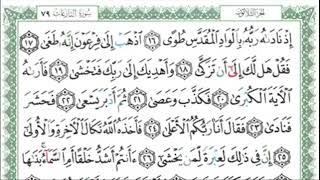 الجزء الثلاثون سورة النازعات ٧٩
إِذْ نَادَىٰهُ رَبُّهُۥ بِٱلْوَادِ ٱلْمُقَدَّسِ طُوًى ١٦ ٱذْهَبْ إِلَىٰ فِرْعَوْنَ إِنَّهُۥ طَغَىٰ ١٧
فَقُلْ هَل لَّكَ إِلَىٰٓ أَن تَزَكَّىٰ ١٨ وَأَهْدِيَكَ إِلَىٰ رَبِّكَ فَتَخْشَىٰ ١٩ فَأَرَىٰهُ
ٱلْءَايَةَ ٱلْكُبْرَىٰ ٢٠ فَكَذَّبَ وَعَصَىٰ ٢١ ثُمَّ أَدْبَرَ يَسْعَىٰ ٢٢ فَحَشَرَ
فَنَادَىٰ ٢٣ فَقَالَ أَنَا۠ رَبُّكُمُ ٱلْأَعْلَىٰ ٢٤ فَأَخَذَهُ ٱللَّهُ نَكَالَ ٱلْءَاخِرَةِ وَٱلْأُولَىٰٓ
٢٥ إِنَّ فِى ذَٰلِكَ لَعِبْرَةً لِّمَن يَخْشَىٰٓ ٢٦ ءَأَنتُمْ أَشَدُّ خَلْقًا أَمِ ٱلسَّمَآءُ ۚ بَنَىٰهَا